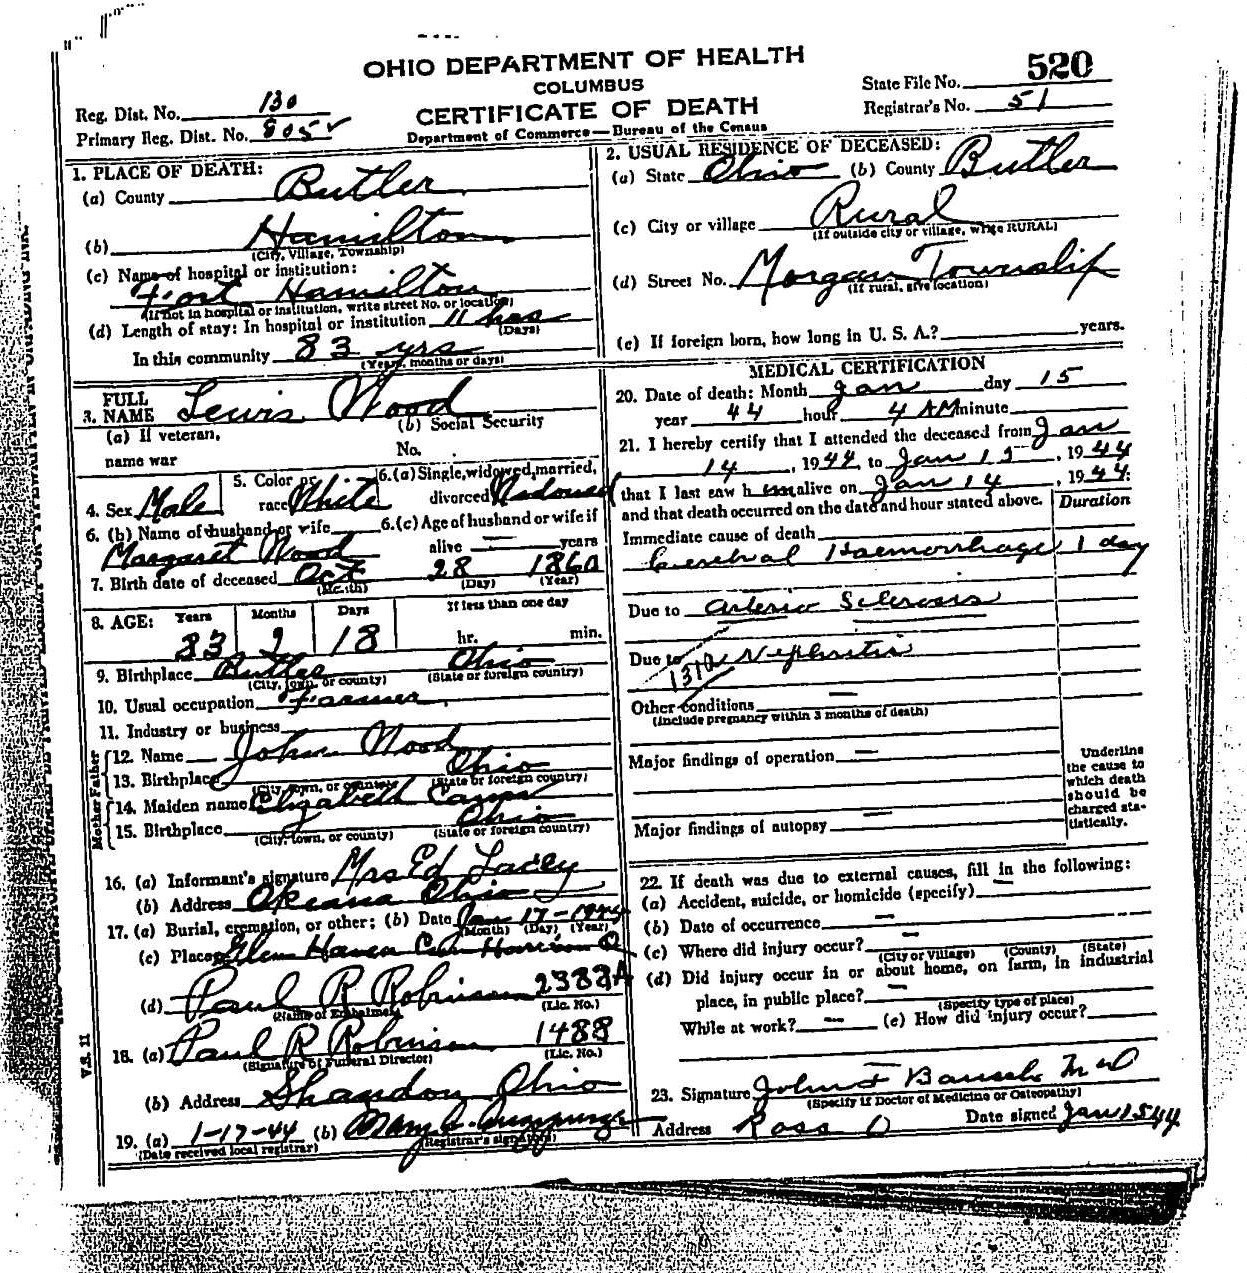 OHIO DEPARTMENT OF HEALTH
COLUMBUS
CERTIFICATE OF DEATH
Department of Commerce—Bureau of the Census
Reg. Dist. No. 130
Primary Reg. Dist. No. 8052
State File No. 520
Registrar's No. 51
1. PLACE OF DEATH:
(a) County Butler
(b) Hamilton
(City, Village, Township)
(c) Name of hospital or institution:
Fort Hamilton
(If not in hospital or institution, write street No. or location)
(d) Length of stay: In hospital or institution 11 hrs
(Days)
In this community 83 yrs
(Years, months or days)
2. USUAL RESIDENCE OF DECEASED:
(a) State Ohio (b) County Butler
(c) City or village Rural
(If outside city or village, write RURAL)
(d) Street No. Morgan Township
(If rural, give location)
(e) If foreign born, how long in U. S. A.? years.
3. FULL NAME Lewis Wood
(a) If veteran, name war
(b) Social Security No.
4. Sex Male
5. Color or race White
6. (a) Single, widowed, married, divorced Widowed
6. (b) Name of husband or wife Margaret Wood
6. (c) Age of husband or wife if alive — years
7. Birth date of deceased Oct 28 1860
(Month) (Day) (Year)
8. AGE: Years Months Days If less than one day
83 2 18 hr. min.
9. Birthplace Butler Ohio
(City, town, or county) (State or foreign country)
10. Usual occupation Farmer
11. Industry or business
Father
12. Name John Wood
13. Birthplace Ohio
(City, town, or county) (State or foreign country)
Mother
14. Maiden name Elizabeth
15. Birthplace Ohio
(City, town, or county) (State or foreign country)
16. (a) Informant's signature Mrs Ed Lacey
(b) Address Okeana Ohio
17. (a) Burial, cremation, or other; (b) Date Jan 17-1944
(Month) (Day) (Year)
(c) Place Glen Haven Cem Harrison O
(d) Paul R Robinson 2383A
(Name of Embalmer) (Lic. No.)
18. (a) Paul R Robinson 1488
(Signature of Funeral Director) (Lic. No.)
(b) Address Shandon Ohio
19. (a) 1-17-44 (b) Mary C.
(Date received local registrar) (Registrar's signature)
V.S. 11
MEDICAL CERTIFICATION
20. Date of death: Month Jan day 15
year 44 hour 4 AM minute
21. I hereby certify that I attended the deceased from Jan
14, 1944, to Jan 15, 1944
that I last saw him alive on Jan 14, 1944
and that death occurred on the date and hour stated above.
Duration
Immediate cause of death
Cerebral Haemorrhage 1 day
Due to Arterio Sclerosis
Due to Nephritis
Other conditions —
(Include pregnancy within 3 months of death)
Major findings of operation —
Major findings of autopsy —
Underline
the cause to
which death
should be
charged sta-
tistically.
22. If death was due to external causes, fill in the following:
(a) Accident, suicide, or homicide (specify) —
(b) Date of occurrence —
(c) Where did injury occur? —
(City or Village) (County) (State)
(d) Did injury occur in or about home, on farm, in industrial
place, in public place? —
(Specify type of place)
While at work? — (e) How did injury occur?
23. Signature John F M D
(Specify if Doctor of Medicine or Osteopathy)
Address Ross O Date signed Jan 15 44